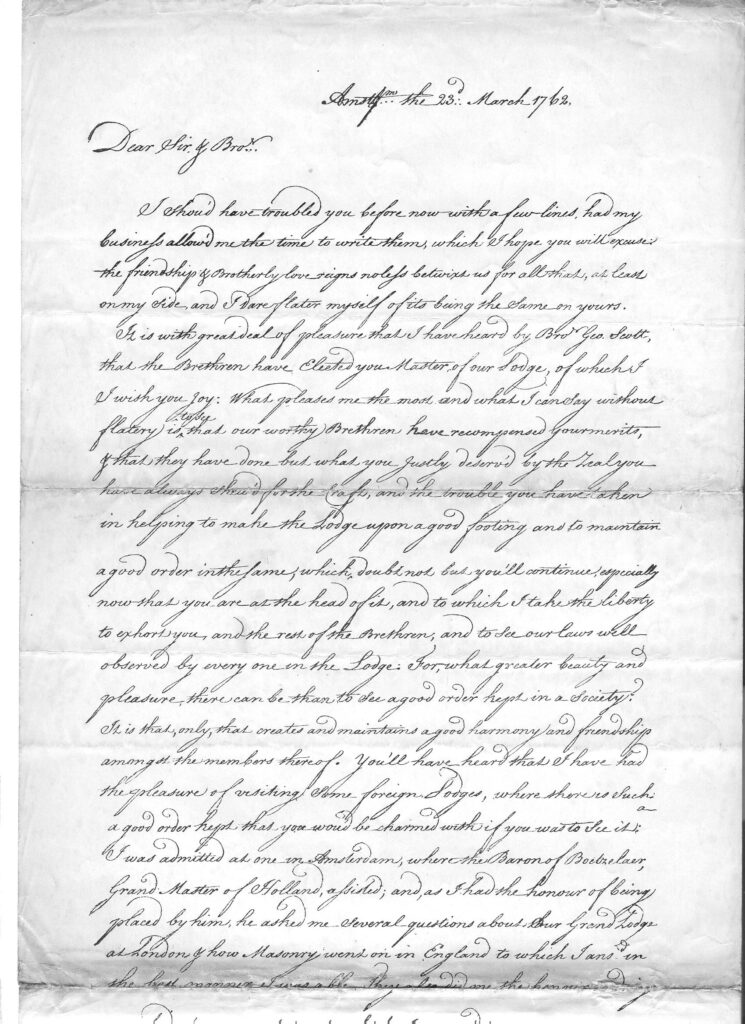 Amstm the 23d: March 1762.
Dear Sir & Bror.
I shou'd have troubled you before now with a few lines, had my
business allow'd me the time to write them, which I hope you will excuse:
the friendship & Brotherly love reigns no less betwixt us for all that, at least
on my side, and I dare flater myself of its being the Same on yours.
It is with great deal of pleasure that I have heard by Bror Geo. Scott,
that the Brethren have Elected you Master of our Lodge, of which I
I wish you Joy: What pleases me the most and what I can Say without
flatery is, that our worthy Brethren have recompensed your merits,
& that they have done but what you Justly deserv'd by the Zeal you
have always Shew'd for the Craft, and the trouble you have taken
in helping to make the Lodge upon a good footing and to maintain
a good order in the same; which, doubt not but you'll continue, especially
now that you are at the head of it, and to which I take the liberty
to exhort you, and the rest of the Brethren, and to See our laws well
observed by every one in the Lodge: For, what greater beauty and
pleasure, there can be than to See a good order kept in a Society?
It is that, only, that creates and maintains a good harmony and friendship
amongst the members thereof. You'll have heard that I have had
the pleasure of visiting Some foreign Lodges, where there is Such
a
a good order kept that you wou'd be charmed with if you was to See it;
I was admitted at one in Amsterdam, where the Baron of Boetzelaer,
Grand Master of Holland, assisted; and, as I had the honour of being
placed by him, he asked me Several questions about Our Grand Lodge
at London & how Masonry went on in England to which I ansd. in
the best manner I was able. They also did me the honour